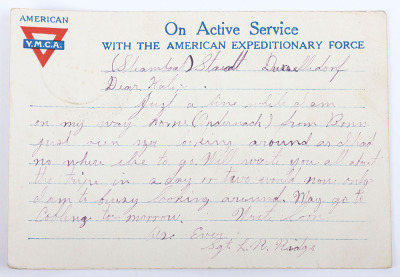 AMERICAN
Y.M.C.A.
On Active Service
WITH THE AMERICAN EXPEDITIONARY FORCE
(Steamboat) Stadt Dusselldorf
Dear Kate:-
Just a line while I am
on my way home (Andernach) from Bonn
just been up looking around as I had
no where else to go. Will write you all about
the trip in a day or two would now only
I am to busy looking around. May go to
Coblinz to-morrow. Write Soon
As Ever
Sgt L. R. Ridge